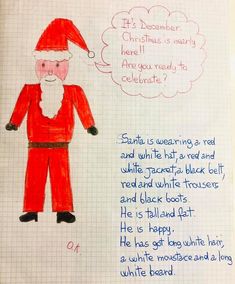 It's December.
Christmas is nearly
here!!
Are you ready to
celebrate?
Santa is wearing a red
and white hat, a red and
white jacket, a black belt,
red and white trousers
and black boots.
He is tall and fat.
He is happy.
He has got long white hair,
a white moustace and a long
white beard.
O.K.